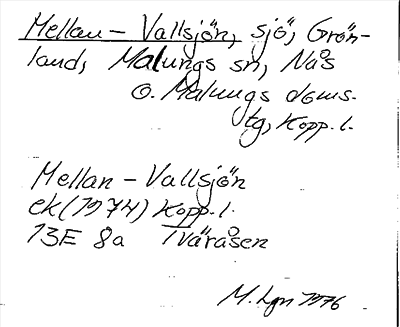 Mellan - Vallsjön, sjö, Grön-
land, Malungs sn, Nås
o. Malungs doms.
tg, Kopp. l.
Mellan - Vallsjön
ek (1974) Kopp. l.
13E 8a Tväråsen
M. Lgn 1976